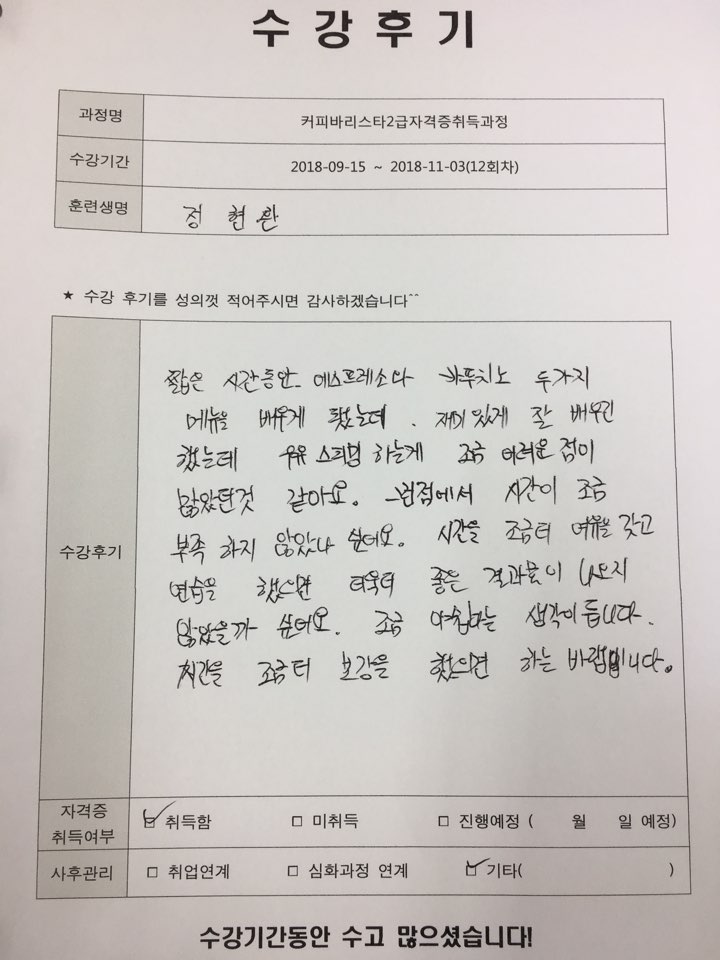 수강후기
과정명 커피바리스타2급자격증취득과정
수강기간 2018-09-15 ~ 2018-11-03(12회차)
훈련생명 정현관
★ 수강 후기를 성의껏 적어주시면 감사하겠습니다^^
짧은 시간동안 에스프레소다 카푸치노 두가지
메뉴을 배우게 됐는데. 재미있게 잘 배우긴
했는데 우유 스티밍 하는게 조금 어려운 점이
많았던것 같아요. 그런점에서 시간이 조금
수강후기
부족 하지 않았나 싶네요. 시간을 조금더 여유을 갖고
연습을 했으면 더욱더 좋은 결과물이 나오지
않았을까 싶네요. 조금 아쉽다는 생각이 듭니다.
시간을 조금더 보강을 했으면 하는 바램입니다.
자격증
취득여부
☑ 취득함 □ 미취득 □ 진행예정 ( 월 일 예정)
사후관리 □ 취업연계 □ 심화과정 연계 ☑ 기타( )
수강기간동안 수고 많으셨습니다!